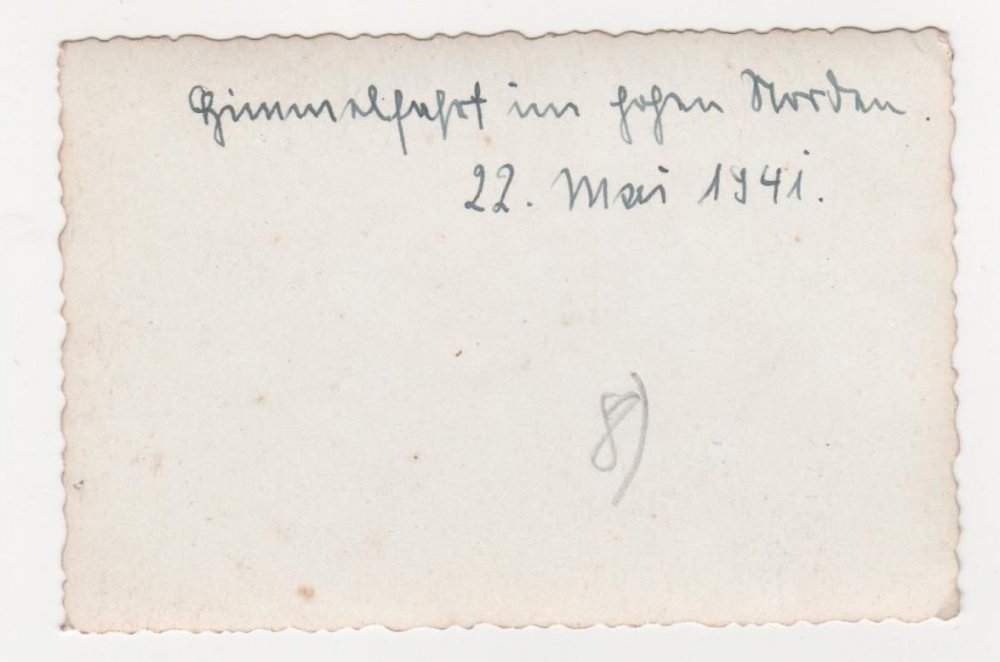 Himmelfahrt im hohen Norden.
22. Mai 1941.
8)